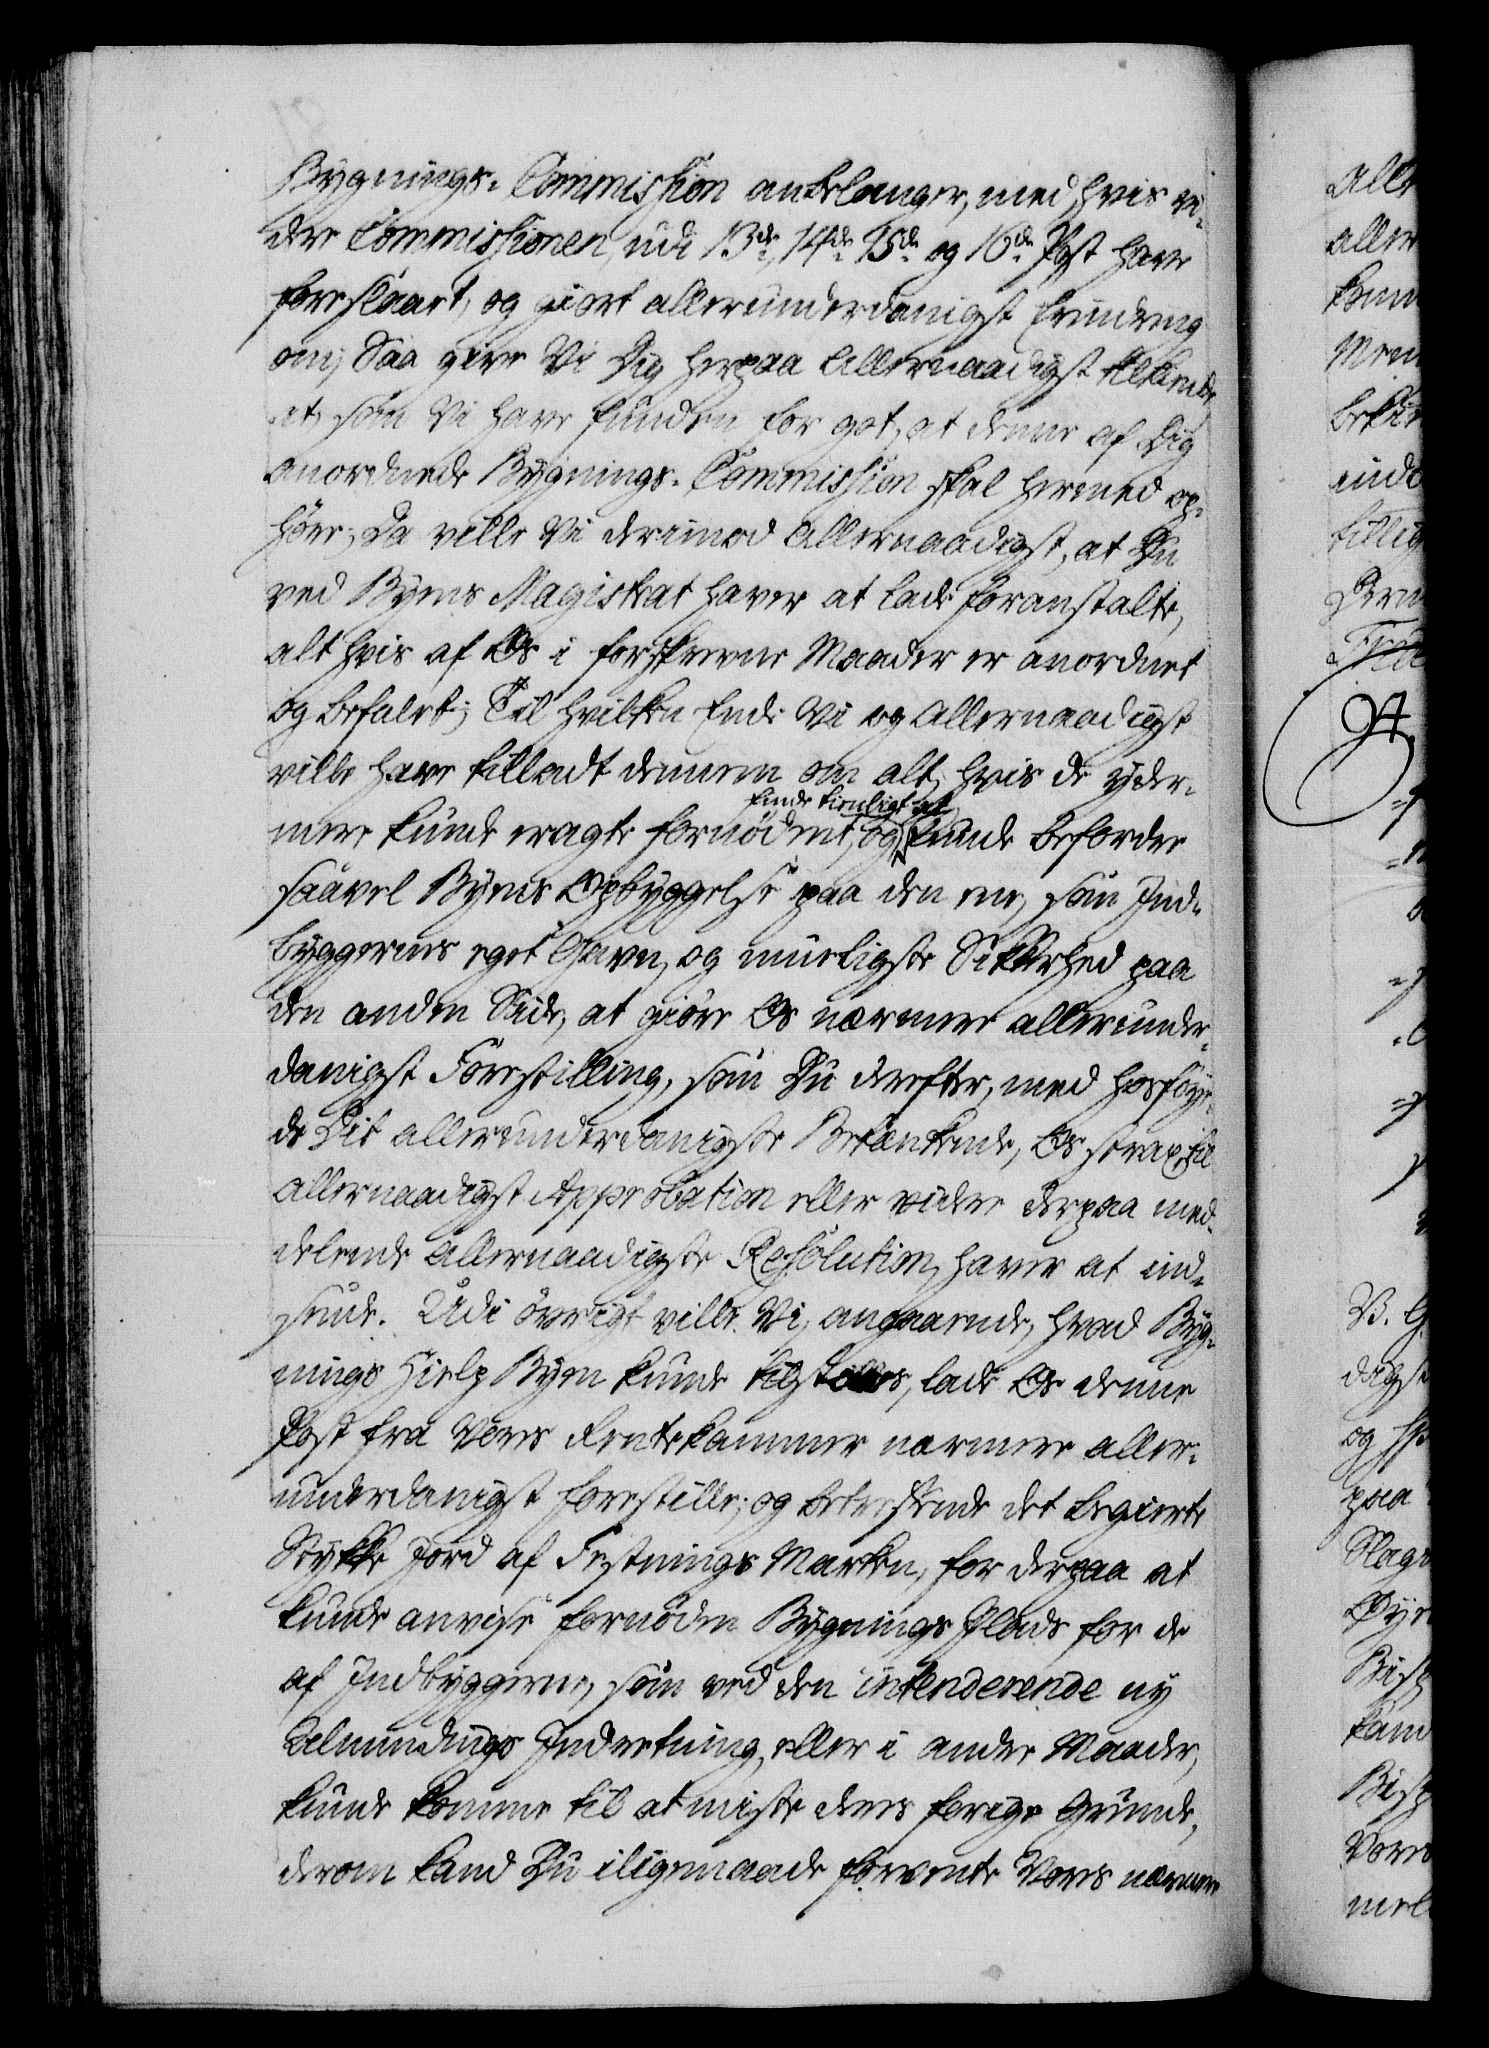 Bygnings-Commission anbelanger, med hvis vi-
dere Commissionen, udi 13de, 14de 15de og 16de Post have
foreslaaet, og giort allerunderdanigst Erindring
om; Saa give Vi Dig herpaa Allernaadigst tilkiende,
at, som Vi have funden for got, at denne af Dig
anordnede Bygnings-Commission skal hermed op-
høre; Da ville Vi derimod Allernaadigst, at Du
ved Byens Magistrat haver at lade foranstalte,
alt hvis af Os i forskrevne Maader er anordnet
og befalet; Til hvilken Ende Vi og Allernaadigst
ville have tilladt dennem om alt, hvis de yder-
mere kunde eragte fornødent, og
finde tienligt at
kunde befordre
saavel Byens Opbyggelse paa den ene, som Ind-
byggernes eget Gavn, og mueligste Sikkerhed paa
den anden Side, at giøre Os nærmere allerunder-
danigst Forestilling, som Du derefter, med hosføye-
de Dit allerunderdanigste Betænkende, Os strax til
Allernaadigst Approbation eller videre derpaa med-
delende Allernaadigste Resolution, haver at ind-
sende. Udi øvrigt ville Vi, angaaende, hvad Byg-
nings Hielp Byen kunde tilstilles, lade Os denne
Post fra Vores Rentekammer nærmere aller-
underdanigst forestille; og betreffende det begierte
Stykke Jord af Festnings Marken, for derpaa at
kunde anvise fornøden Bygnings Plads for de
af Indbyggerne, som ved den intenderende ny
Almindings Indretning, eller i andre Maader,
kunde komme til at miste deres forige Grunde,
derom kand Du iligemaade forvente Vores nærmere